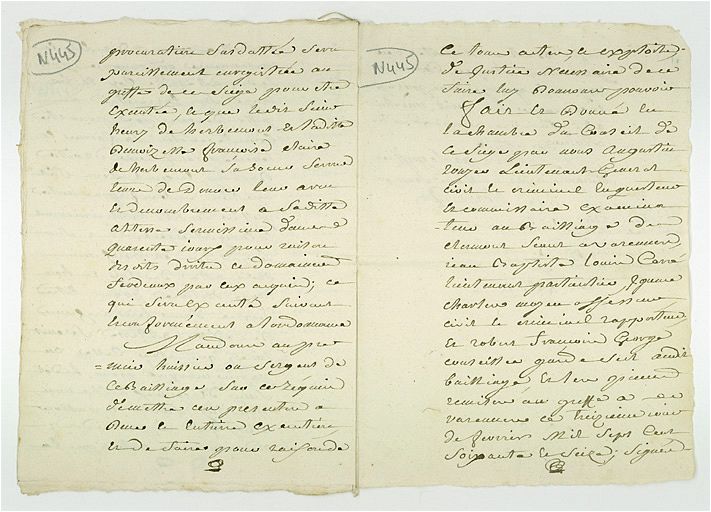 N445
procuration susdattée sera
pareillement enregistrée au
greffe de ce siège pour être
exécutée, ce que ledit sieur
henry de herbemont et laditte
Demoizelle françoise claire
de herbemont sa soeur seront
tenus de donner leur aveu
et denombrement a saditte
altesse serenissime dans
quarente jours pour raison
desdits droits et domaines
feodaux par eux acquis; ce
qui sera exécuté suivant
et conformément a l'ordonnance
Mandons au pre
= mier huissier ou sergent de
ce Bailliage sur ce requis
de mettre ces presentes a
Dues et entiere execution
et de faire pour raison de
N445
ce tous actes et exploits
de justice necessaire de ce
faire luy Donnons pouvoir
Fait et Donné en
la chambre du Conseil de
ce siège par nous Augustin
Lieutenant General
civil et criminel enqueteur
et commissaire examina
teur au Bailliage de
clermont seant a varennes,
jean Baptiste Louis Carra
lieutenant particulier,
charles moyen assesseur
civil et criminel rapporteur
et robert françois George
conseiller garde scel audit
bailliage et les pieces
remises au greffe a
varennes ce treizieme jour
de fevrier Mil Sept Cent
soixante et Seize; signé